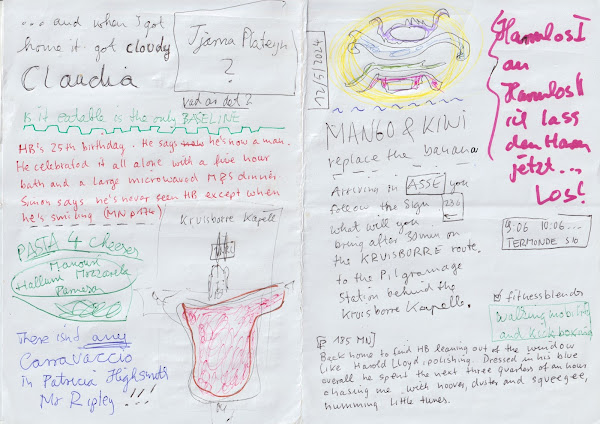 ... and when I got
home it got cloudy
Claudia
Tjama Plateyn
?
vad as dot ?
Is it eatable is the only BASELINE
HB's 25th birthday. He says he's now a man.
He celebrated it all alone with a five hour
bath and a large microwaved M&S dinner.
Simon says he's never seen HB except when
he's smiling (MN p174)
PASTA 4 cheeses
Manouri
Hallumi Mozzarela
Parmesan
There isn't any
Carravaccio
in Patricia Highsmith
Mr Ripley !!!
Kruisborre Kapell
N
12/5/2024
MANGO & KIWI
replace the banana
Arriving in ASSE you
follow the sign 236
what will you
bring after 30min on
the KRUISBORRE route.
to the Pilgrimage
station behind the
Kruisborre Kapelle.
Harmlos I
an
Harmlos II
ich lass
den Harm
jetzt...
Los!
9:06 10:06...
TERMONDE S10
fitnessblender
walking mobility
and Kickboxing
[p 185 MN]
Back home to find HB leaning out of the window
like Harold Lloyd, polishing. Dressed in his blue
overall he spent the next three quarters of an hour
chasing me with hoover, duster and squeegee,
humming little tunes.